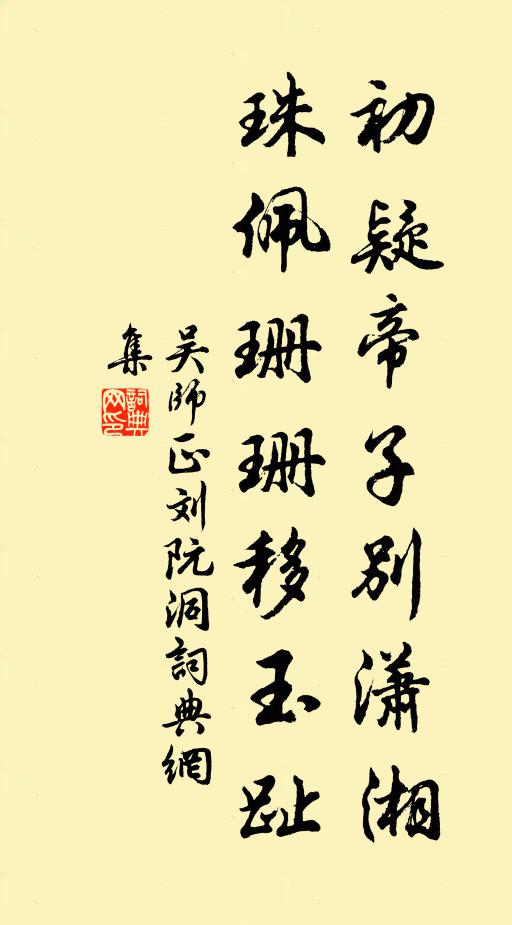 初疑帝子别潇湘
珠佩珊珊移玉趾
吴師正刘阮洞詞典網
集
詞典
网印